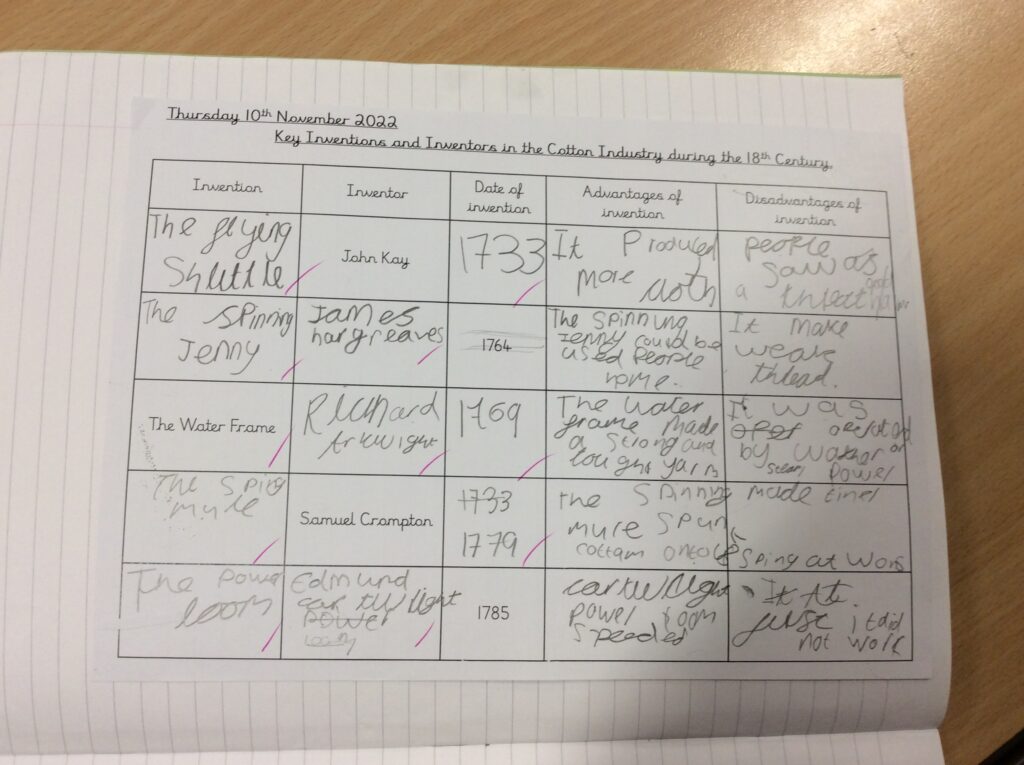 Thursday 10th November 2022
Key Inventions and Inventors in the Cotton Industry during the 18th Century.
Invention
Inventor
Date of
invention
Advantages of
invention
Disadvantages of
invention
The flying
Shuttle
John Kay
1733
It Produced
more cloth
people
saw as
a threat
The Spinning
Jenny
James
hargreaves
1764
The spinning
Jenny could be
used People
home.
It make
weak
thread.
The Water Frame
Richard
Arkwright
1769
The water
frame made
a strong and
It was
by
Power
The Sping
mule
Samuel Crompton
1733
1779
the Spinning
mule Spun
made finer
Sping at
The Power
loom
Edmund
cartwright
power
loom
1785
cartwright
power loom
speeded
It
just it did
not work